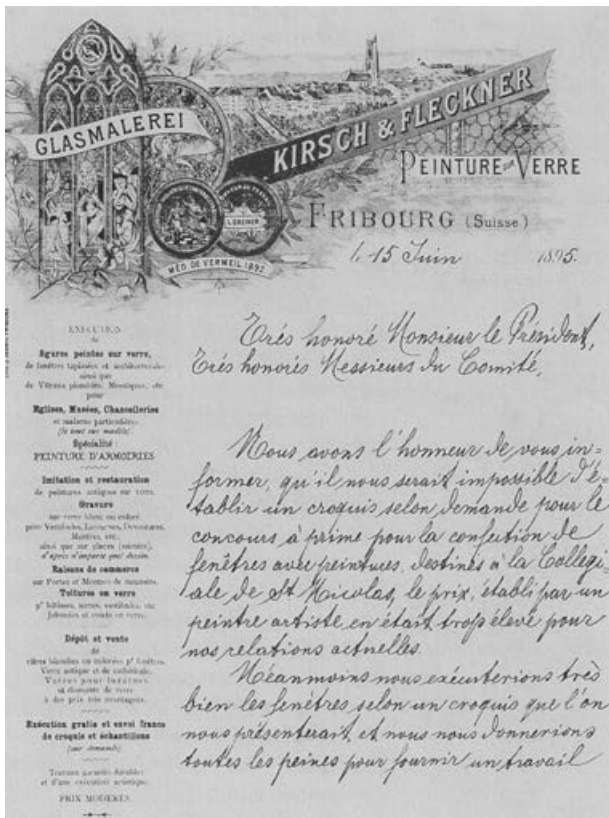 GLASMALEREI
KIRSCH & FLECKNER
PEINTURE SUR VERRE
FRIBOURG (Suisse)
MÉD. DE VERMEIL 1892
L. GREINER
15 Juin 1895.
EXÉCUTION
de
figures peintes sur verre,
de fenêtres tapissées et architecturales
ainsi que
de Vitraux plombés, Mosaïques, etc.
pour
Eglises, Musées, Chancelleries
et maisons particulières
(le tout sur modèle).
Spécialité:
PEINTURE D'ARMOIRIES
Imitation et restauration
de peintures antiques sur verre.
Gravure
sur verre blanc ou coloré
pour Vestibules, Devantures,
etc.,
ainsi que sur glaces (miroirs),
d'après n'importe quel dessin.
Raisons de commerce
sur Portes et Montres de magasins.
Toitures en verre
Dépôt et vente
de
vitres blanches ou colorées pr fenêtres.
Verre antique et de cathédrale.
Verres pour lucarnes
et diamants de verre
à des prix très avantageux.
Exécution gratis et envoi franco
de croquis et échantillons
(sur demande)
Travaux garantis durables
et d'une exécution artistique.
PRIX MODÉRÉS
Trés honoré Monsieur le Président,
Trés honorés Messieurs du Comité,
Nous avons l'honneur de vous in=
former, qu'il nous serait impossible d'é=
tablir un croquis selon demande pour le
concours à prime pour la confection de
fenêtres avec peintures, destinés à la Collegi=
ale de St Nicolas, le prix, établi par un
peintre artiste en était trop élevé pour
nos relations actuelles.
Néanmoins nous exécuterions très
bien les fenêtres selon un croquis que l'on
nous présenterait, et nous nous donnerions
toutes les peines pour fournir un travail